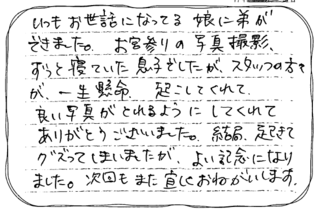 いつもお世話になってる娘に弟が
できました。お宮参りの写真撮影、
ずっと寝ていた息子でしたが、スタッフの方々
が、一生懸命起こしてくれて、
良い写真がとれるようにしてくれて
ありがとうございました。結局、起きて
グズってしまいましたが、よい記念になり
ました。次回もまた宜しくおねがいします。